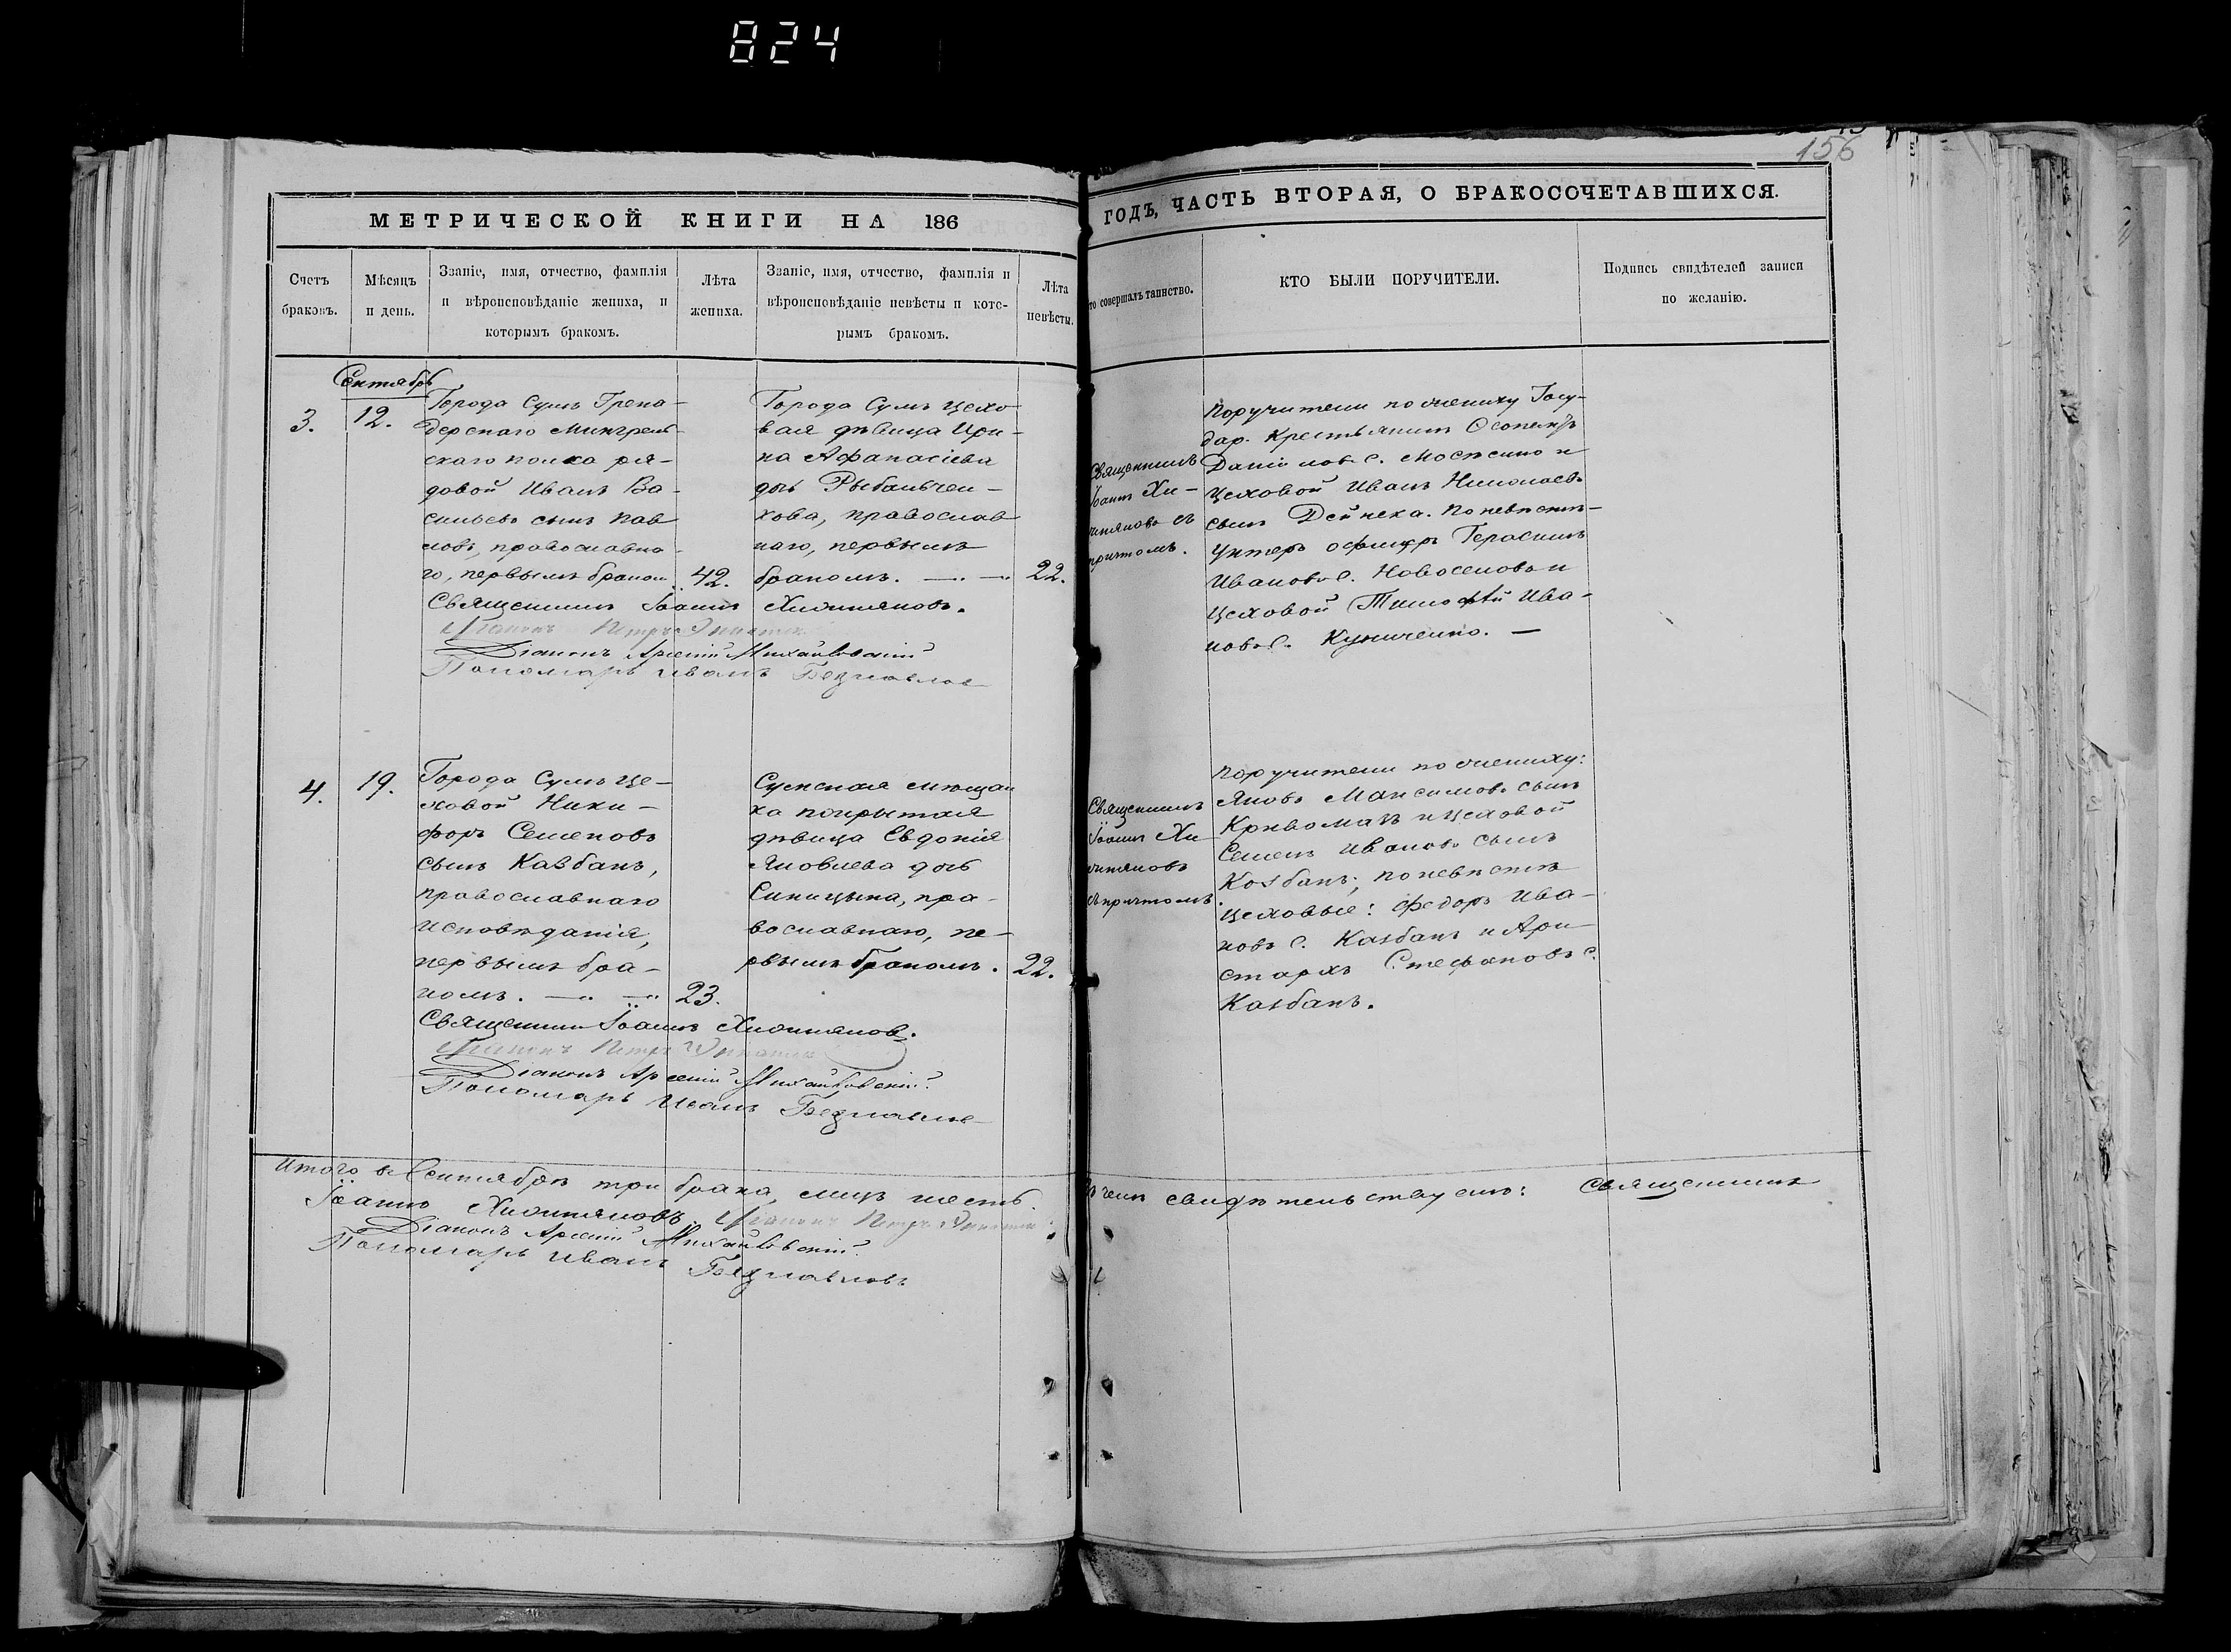 824
156
МЕТРИЧЕСКОЙ КНИГИ НА 186
ГОДЪ, ЧАСТЬ ВТОРАЯ, О БРАКОСОЧЕТАВШИХСЯ.
Счетъ
браковъ.
Мѣсяцъ
и день.
Званіе, имя, отчество, фамилія
и вѣроисповѣданіе жениха, и
которымъ бракомъ.
Лѣта
жениха.
Званіе, имя, отчество, фамилія и
вѣроисповѣданіе невѣсты и кото-
рымъ бракомъ.
Лѣта
невѣсты.
то совершалъ таинство.
КТО БЫЛИ ПОРУЧИТЕЛИ.
Подпись свидѣтелей записи
по желанію.
Сентябрь
3.
12.
Города Сумъ Грена-
дерскаго Мингрель-
скаго полка ря-
довой Иванъ Ва-
сильевъ сынъ Пав
ловъ, православна-
го, первымъ браком.
42.
Города Сумъ цехо
вая дѣвица Ири-
на Афанасіева
дочь Рыбальчен-
кова, православ
наго, первымъ
бракомъ.
22.
Священникъ
Іоаннъ Хи-
жняковъ съ
причтомъ.
Поручители по жениху Госу-
дар. Крестьянинъ
Даніиловъ с. и
Цеховой Иванъ Николаевъ
сынъ Дейнека. По невѣстѣ-
Унтеръ офицеръ Герасимъ
Ивановъ с. Новоселовъ и
Цеховой Тимофѣй Ива-
новъ с. Куниченко. —
Священникъ Іоаннъ Хижняковъ.
Діаконъ Петръ
Діаконъ Арсеній Михайловскій
Пономарь Иванъ
4.
19.
Города Сумъ Це-
ховой Ники-
форъ Семеновъ
сынъ Кавбанъ,
православнаго
исповѣданія,
первымъ бра-
комъ.
23.
Сумская мѣщан
ка покрытая
дѣвица Евдокія
Яковлева дочь
Синицына, пра-
вославнаго, пе-
рвымъ бракомъ.
22.
Священникъ
Іоаннъ Хи
жняковъ
съ причтомъ.
Поручители по жениху:
Яковъ Максимовъ сынъ
Кривомазъ и цеховой
Семенъ Ивановъ сынъ
Ковбанъ; по невѣстѣ
цеховые: Федоръ Ива-
новъ с. Кавбанъ и Ари
стархъ Стефановъ с.
Кавбанъ.
Священникъ Іоаннъ Хижняковъ.
Діаконъ Петръ
Діаконъ Арсеній Михайловскій.
Пономарь Иванъ
Итого въ Сентябрѣ три брака, лицъ шесть.
въ чемъ свидѣтельствуемъ: Священникъ
Іоаннъ Хижняковъ Діаконъ Петръ
Діаконъ Арсеній Михайловскій.
Пономарь Иванъ